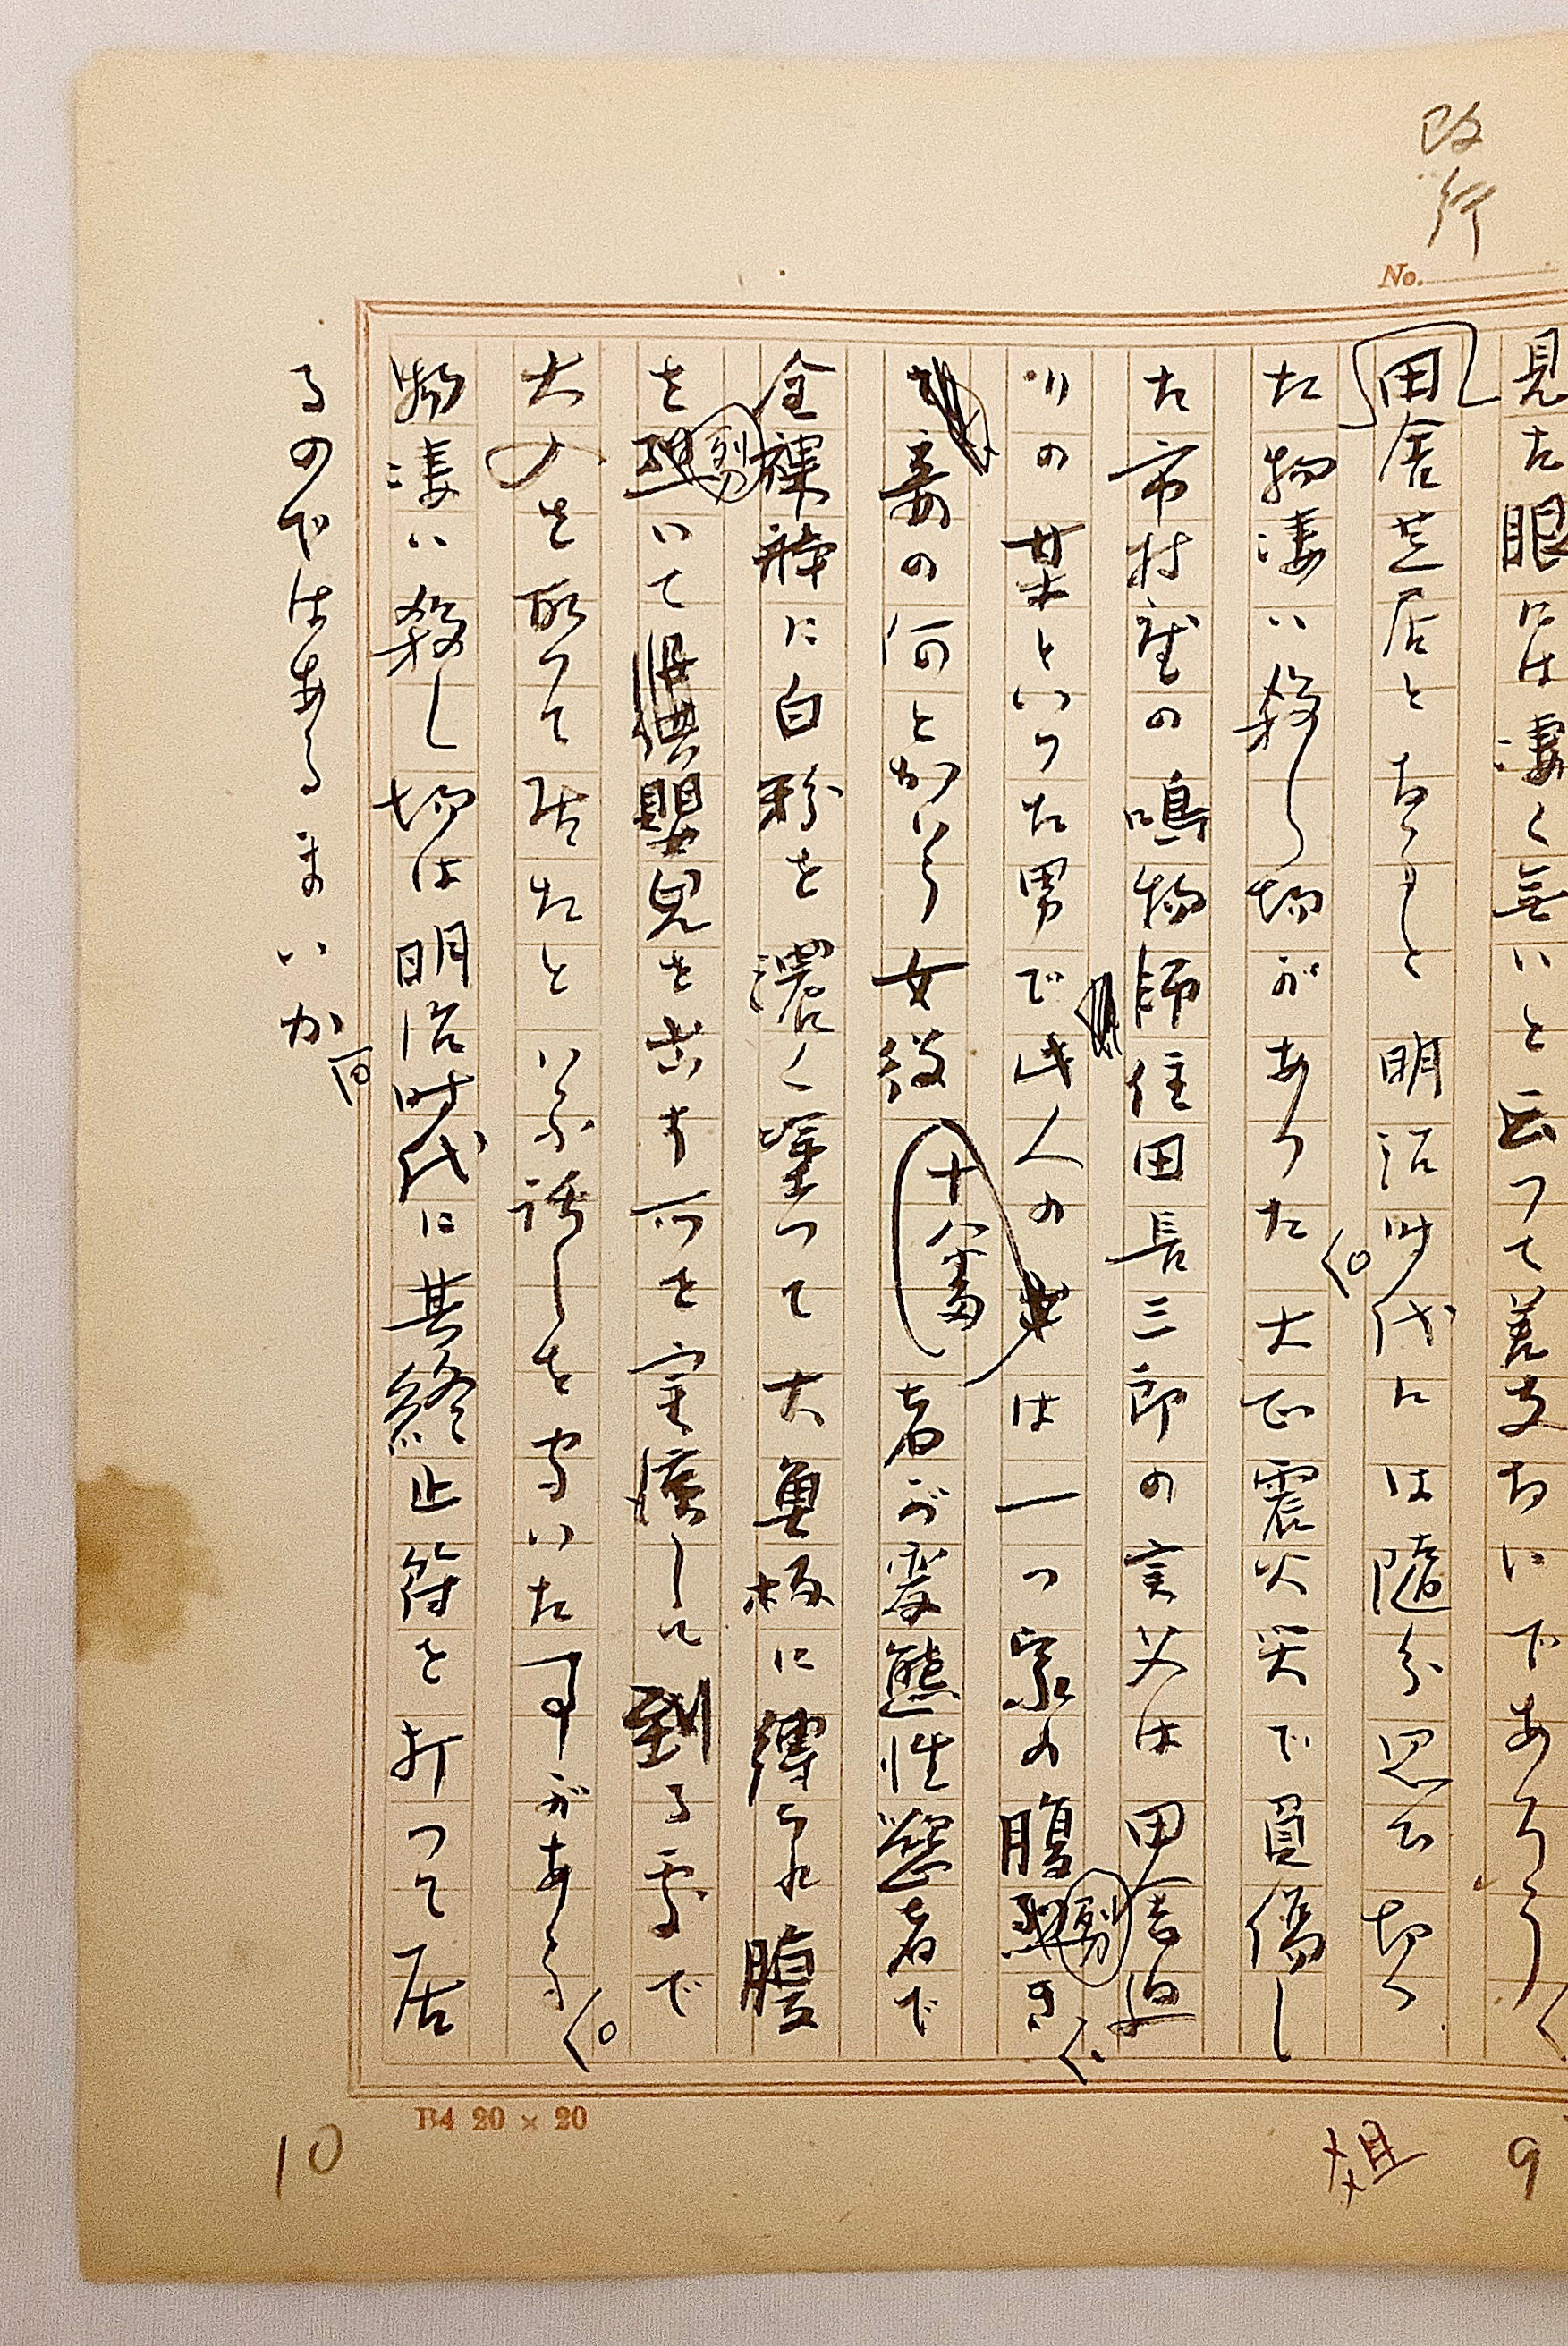 改行
No.
見た眼には凄く無いと云つて差支ないであらう
田舎芝居となると明治時代には随分思ひ切つ
た物凄い殺し場があつた。大正震火災で負傷し
た市村座の鳴物師住田長三郎の実父は田舎廻
りの某といつた男で此人の十八番は一つ家の腹き、
妾の何とかいう女役者が変態性慾者で
全裸体に白粉を濃く塗つて大俎板に縛られ腹
をいて嬰児を出す所を実演して到る處で
大入を取つて居たといふ話しを聞いた事がある。
物凄い殺し場は明治時代に其終止符を打つて居
るのではあるまいか
B4 20 × 20
俎
9
10